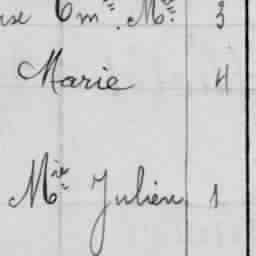 6m.. Mr. 3
Marie 4
Mre Julien 1